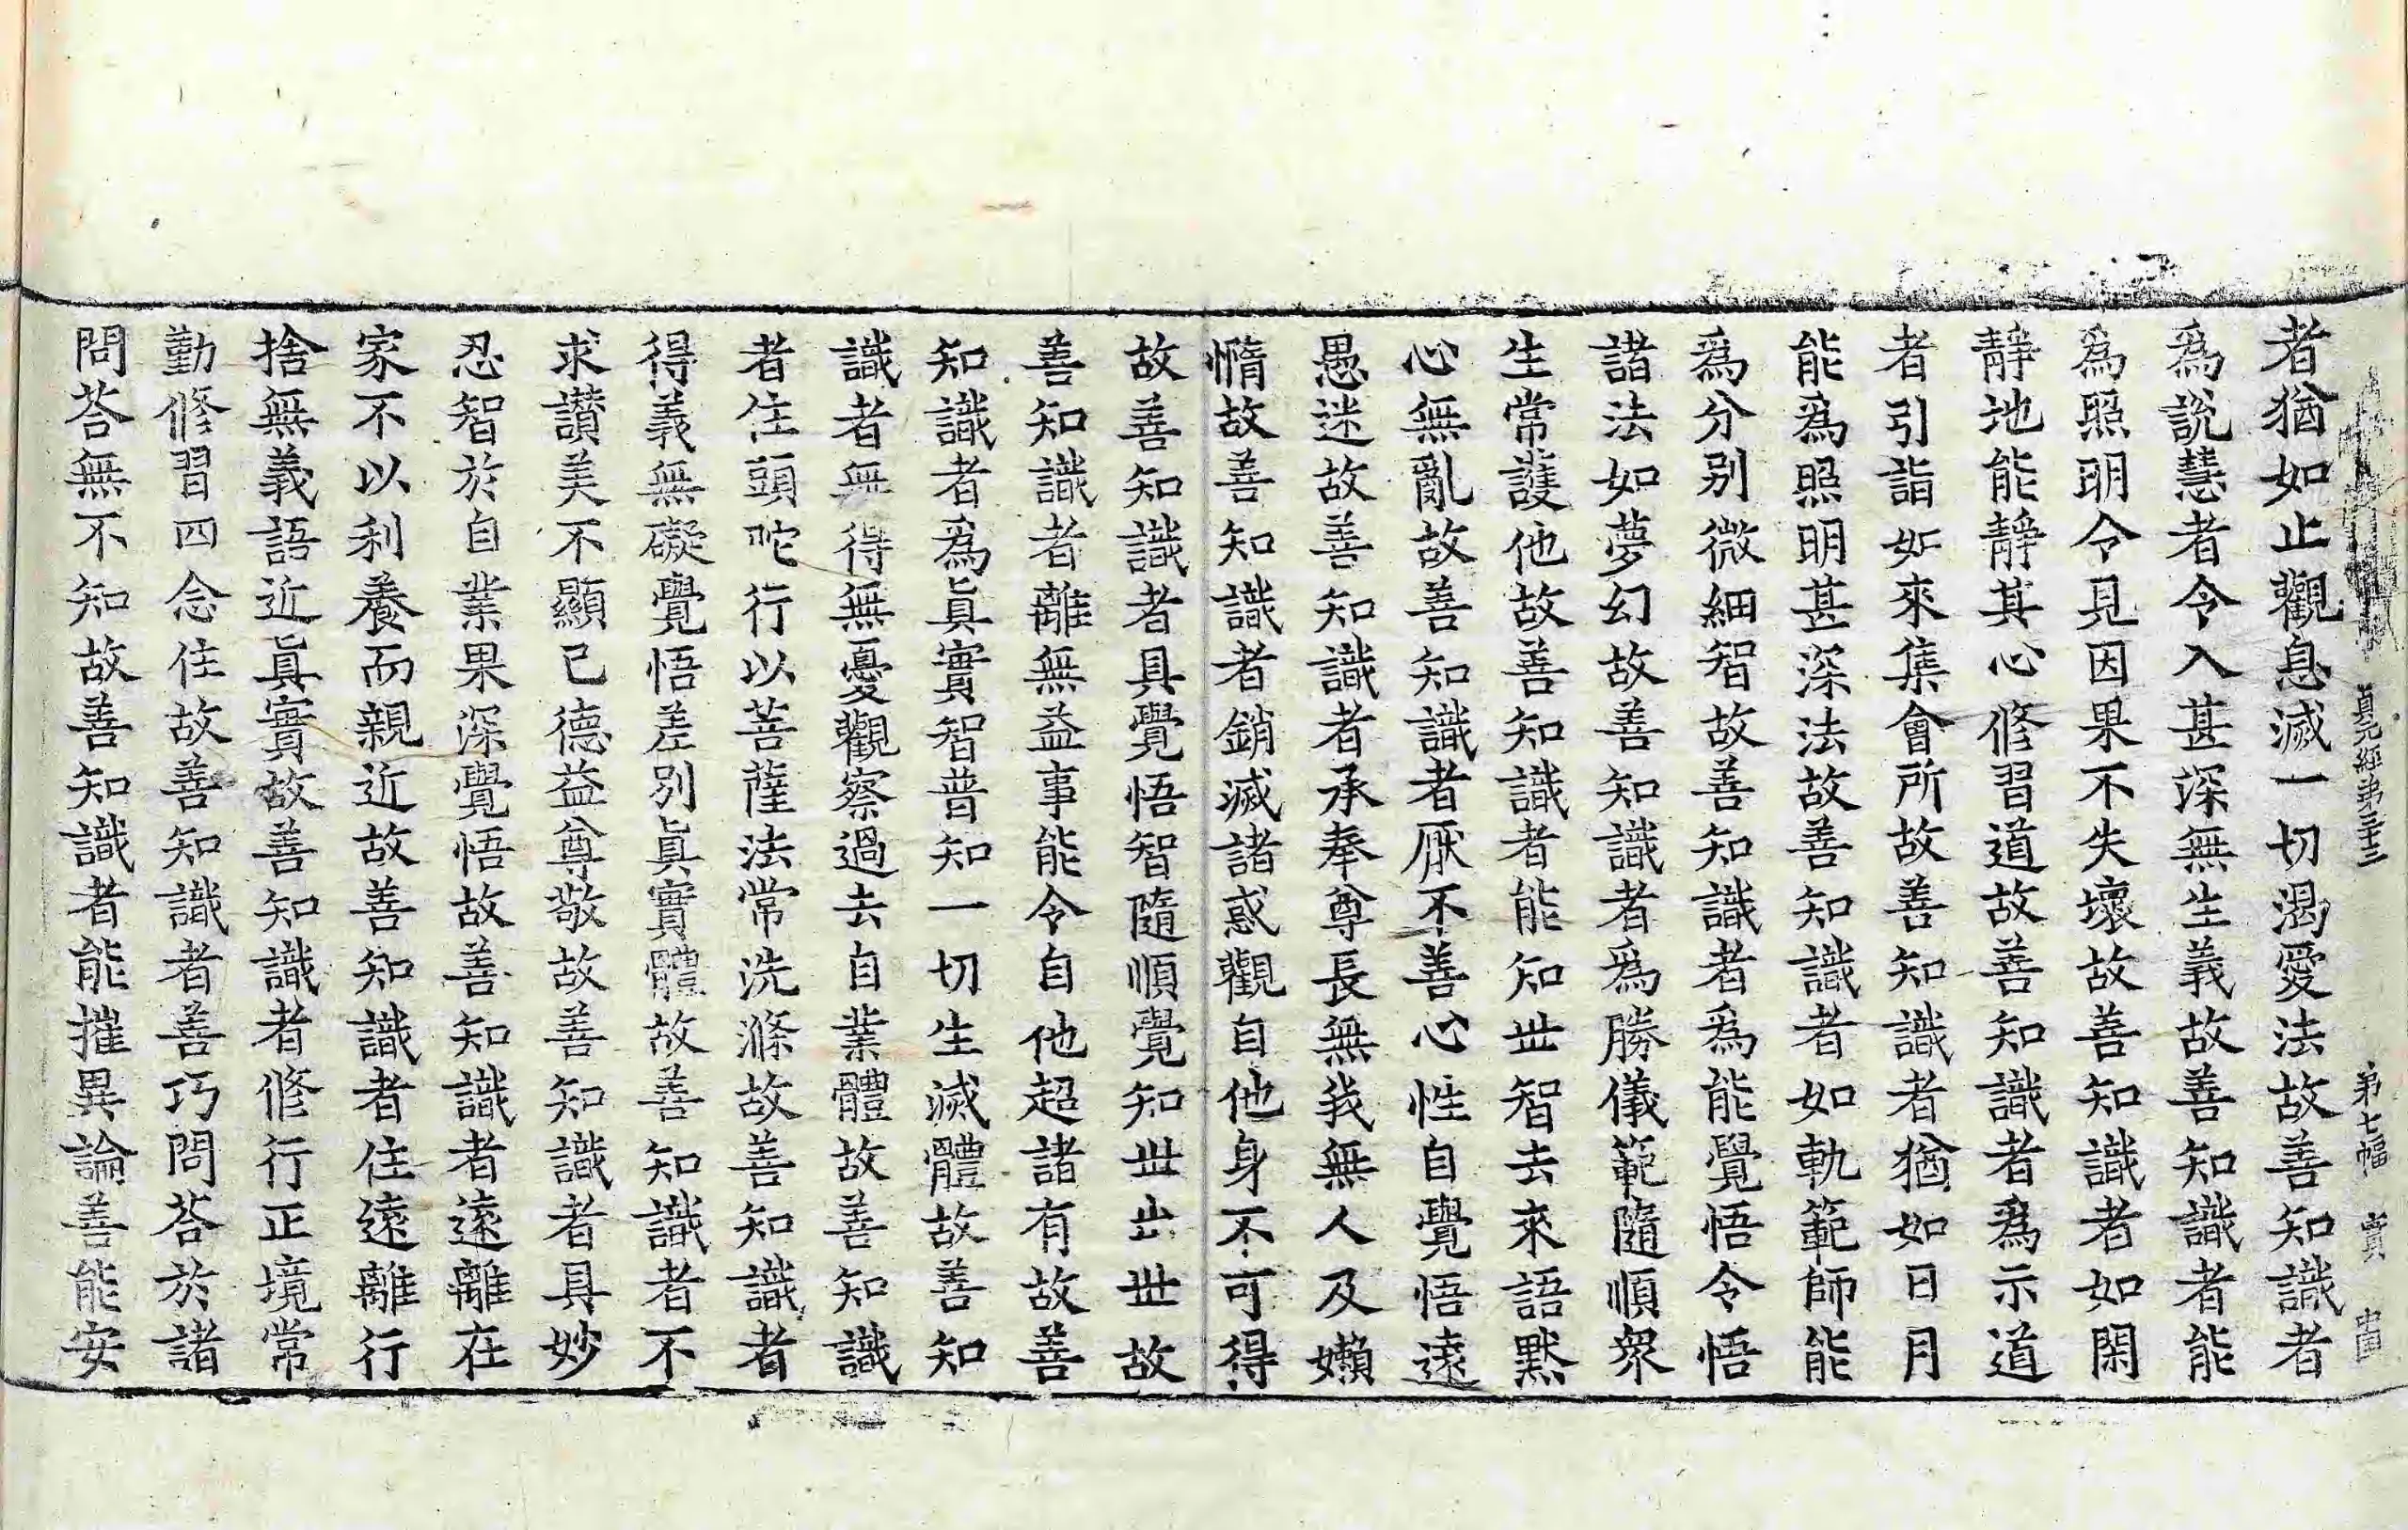 貞元經第三十三 第七幅 實
者猶如止觀息滅一切渴愛法故善知識者
爲說慧者令入甚深無生義故善知識者能
爲照明令見因果不失壞故善知識者如閑
靜地能靜其心修習道故善知識者爲示道
者引詣如來集會所故善知識者猶如日月
能爲照明甚深法故善知識者如軌範師能
爲分別微細智故善知識者爲能覺悟令悟
諸法如夢幻故善知識者爲勝儀範隨順衆
生常護他故善知識者能知世智去來語默
心無亂故善知識者厭不善心性自覺悟遠
愚迷故善知識者承奉尊長無我無人及嬾
惰故善知識者銷滅諸惑觀自他身不可得
故善知識者具覺悟智隨順覺知世出世故
善知識者離無益事能令自他超諸有故善
知識者爲眞實智普知一切生滅體故善知
識者無得無憂觀察過去自業體故善知識
者住頭咜行以菩薩法常洗滌故善知識者
得義無礙覺悟差別眞實體故善知識者不
求讚美不顯已德益尊敬故善知識者具妙
忍智於自業果深覺悟故善知識者遠離在
家不以利養而親近故善知識者住遠離行
捨無義語近眞實故善知識者修行正境常
勤修習四念住故善知識者善巧問荅於諸
問荅無不知故善知識者能摧異論善能安